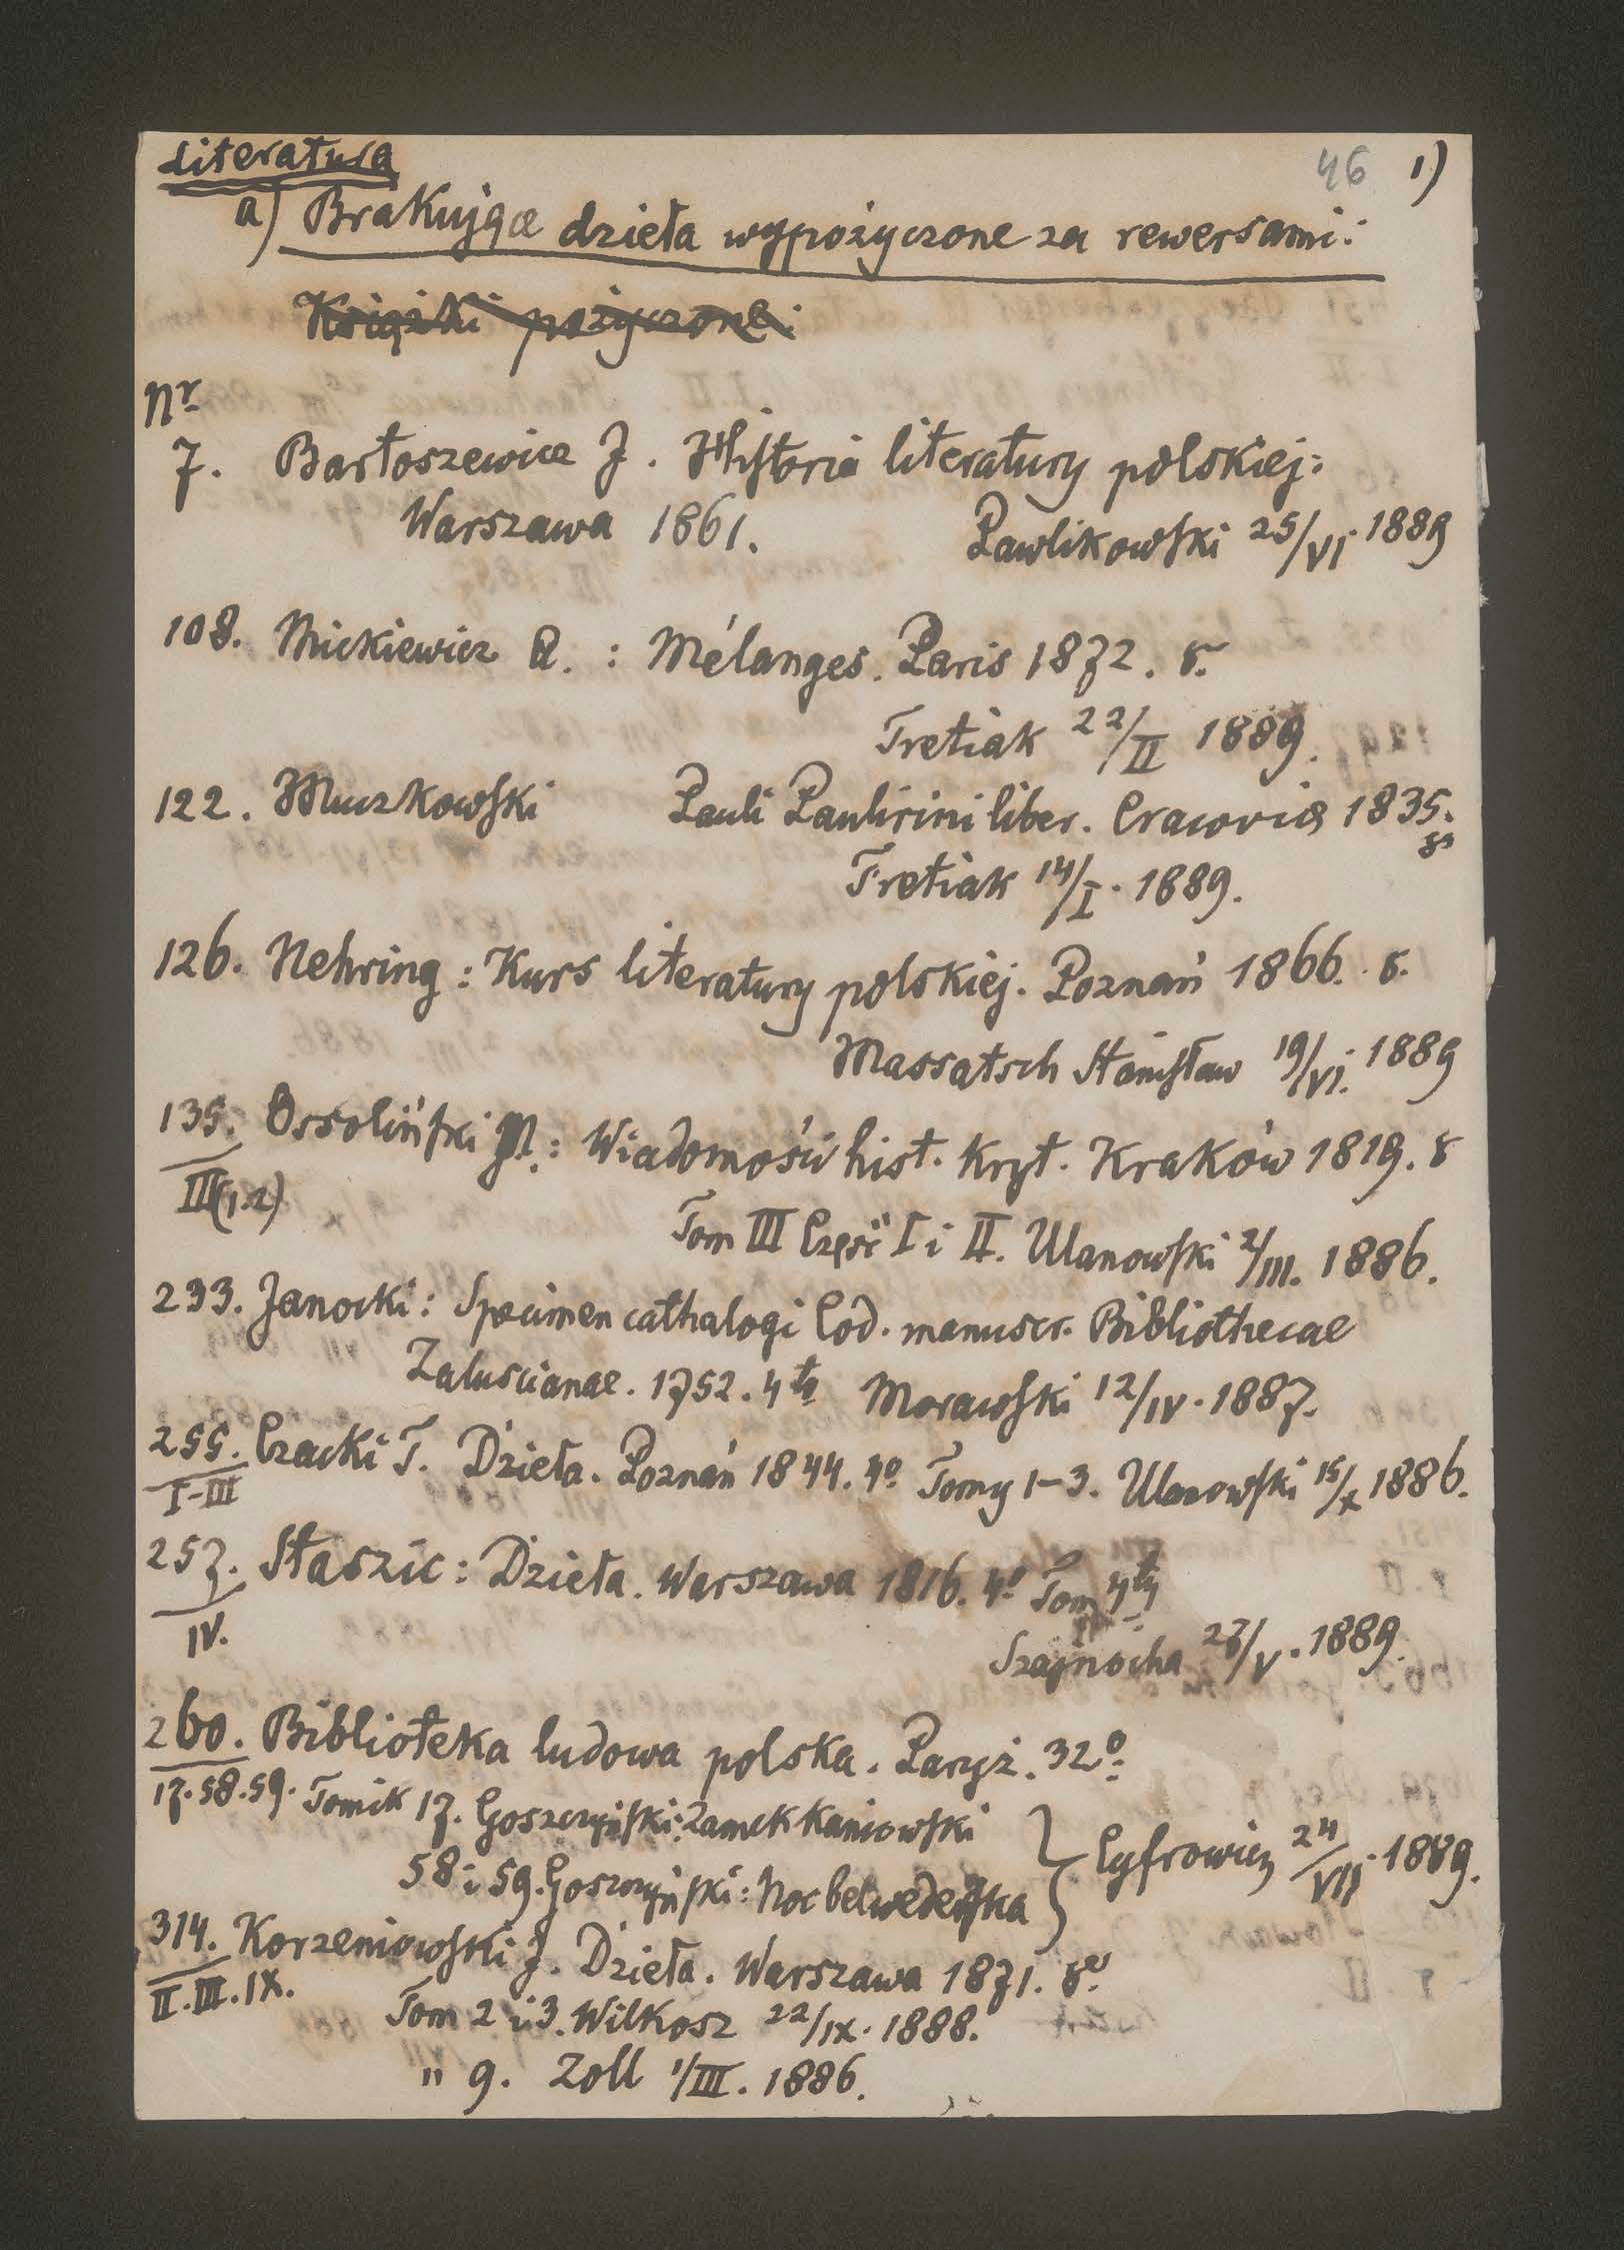 Literatura
46 1)
a) Brakujące dzieła wypożyczone za rewersami:
Książki pożyczone:
Nr
7. Bartoszewicz J. Historia literatury polskiej:
Warszawa 1861. Pawlikowski 25/VI 1889
108. Mickiewicz A. : Mélanges. Paris 1872. 8.
Tretiak 22/II 1889.
122. Muczkowski Pauli Paulirini liber. Cracovia 1835.
8º
Tretiak 14/I. 1889.
126. Nehring : Kurs literatury polskiej. Poznań 1866. 8.
Massatsch Stanisław 19/VI. 1889
135. Ossoliński M.: Wiadomości hist. kryt. Kraków 1819. 8
III(1.2)
Tom III Część I i II. Ulanowski 2/III. 1886.
233. Janocki: Specimen cathalogi Cod. manuscr. Bibliothecae
Zaluscianae. 1752. 4to Morawski 12/IV. 1887.
255. Czacki T. Dzieła. Poznań 1844. 4º Tomy 1-3. Ulanowski 15/X 1886.
I-III
257. Staszic: Dzieła. Warszawa 1816. 4º Tom 4ty
IV.
Szajnocha 27/V. 1889.
260. Biblioteka ludowa polska. Paryż. 32º
17.58.59. Tomik 17. Goszczyński: Zamek Kaniowski
58 i 59. Goszczyński: Noc belwederska } Cyfrowicz 24/VII. 1889.
314. Korzeniowski J. Dzieła. Warszawa 1871. 8º
II.III.IX.
Tom 2 i 3. Wilkosz 22/IX. 1888.
" 9. Zoll 1/III. 1886.